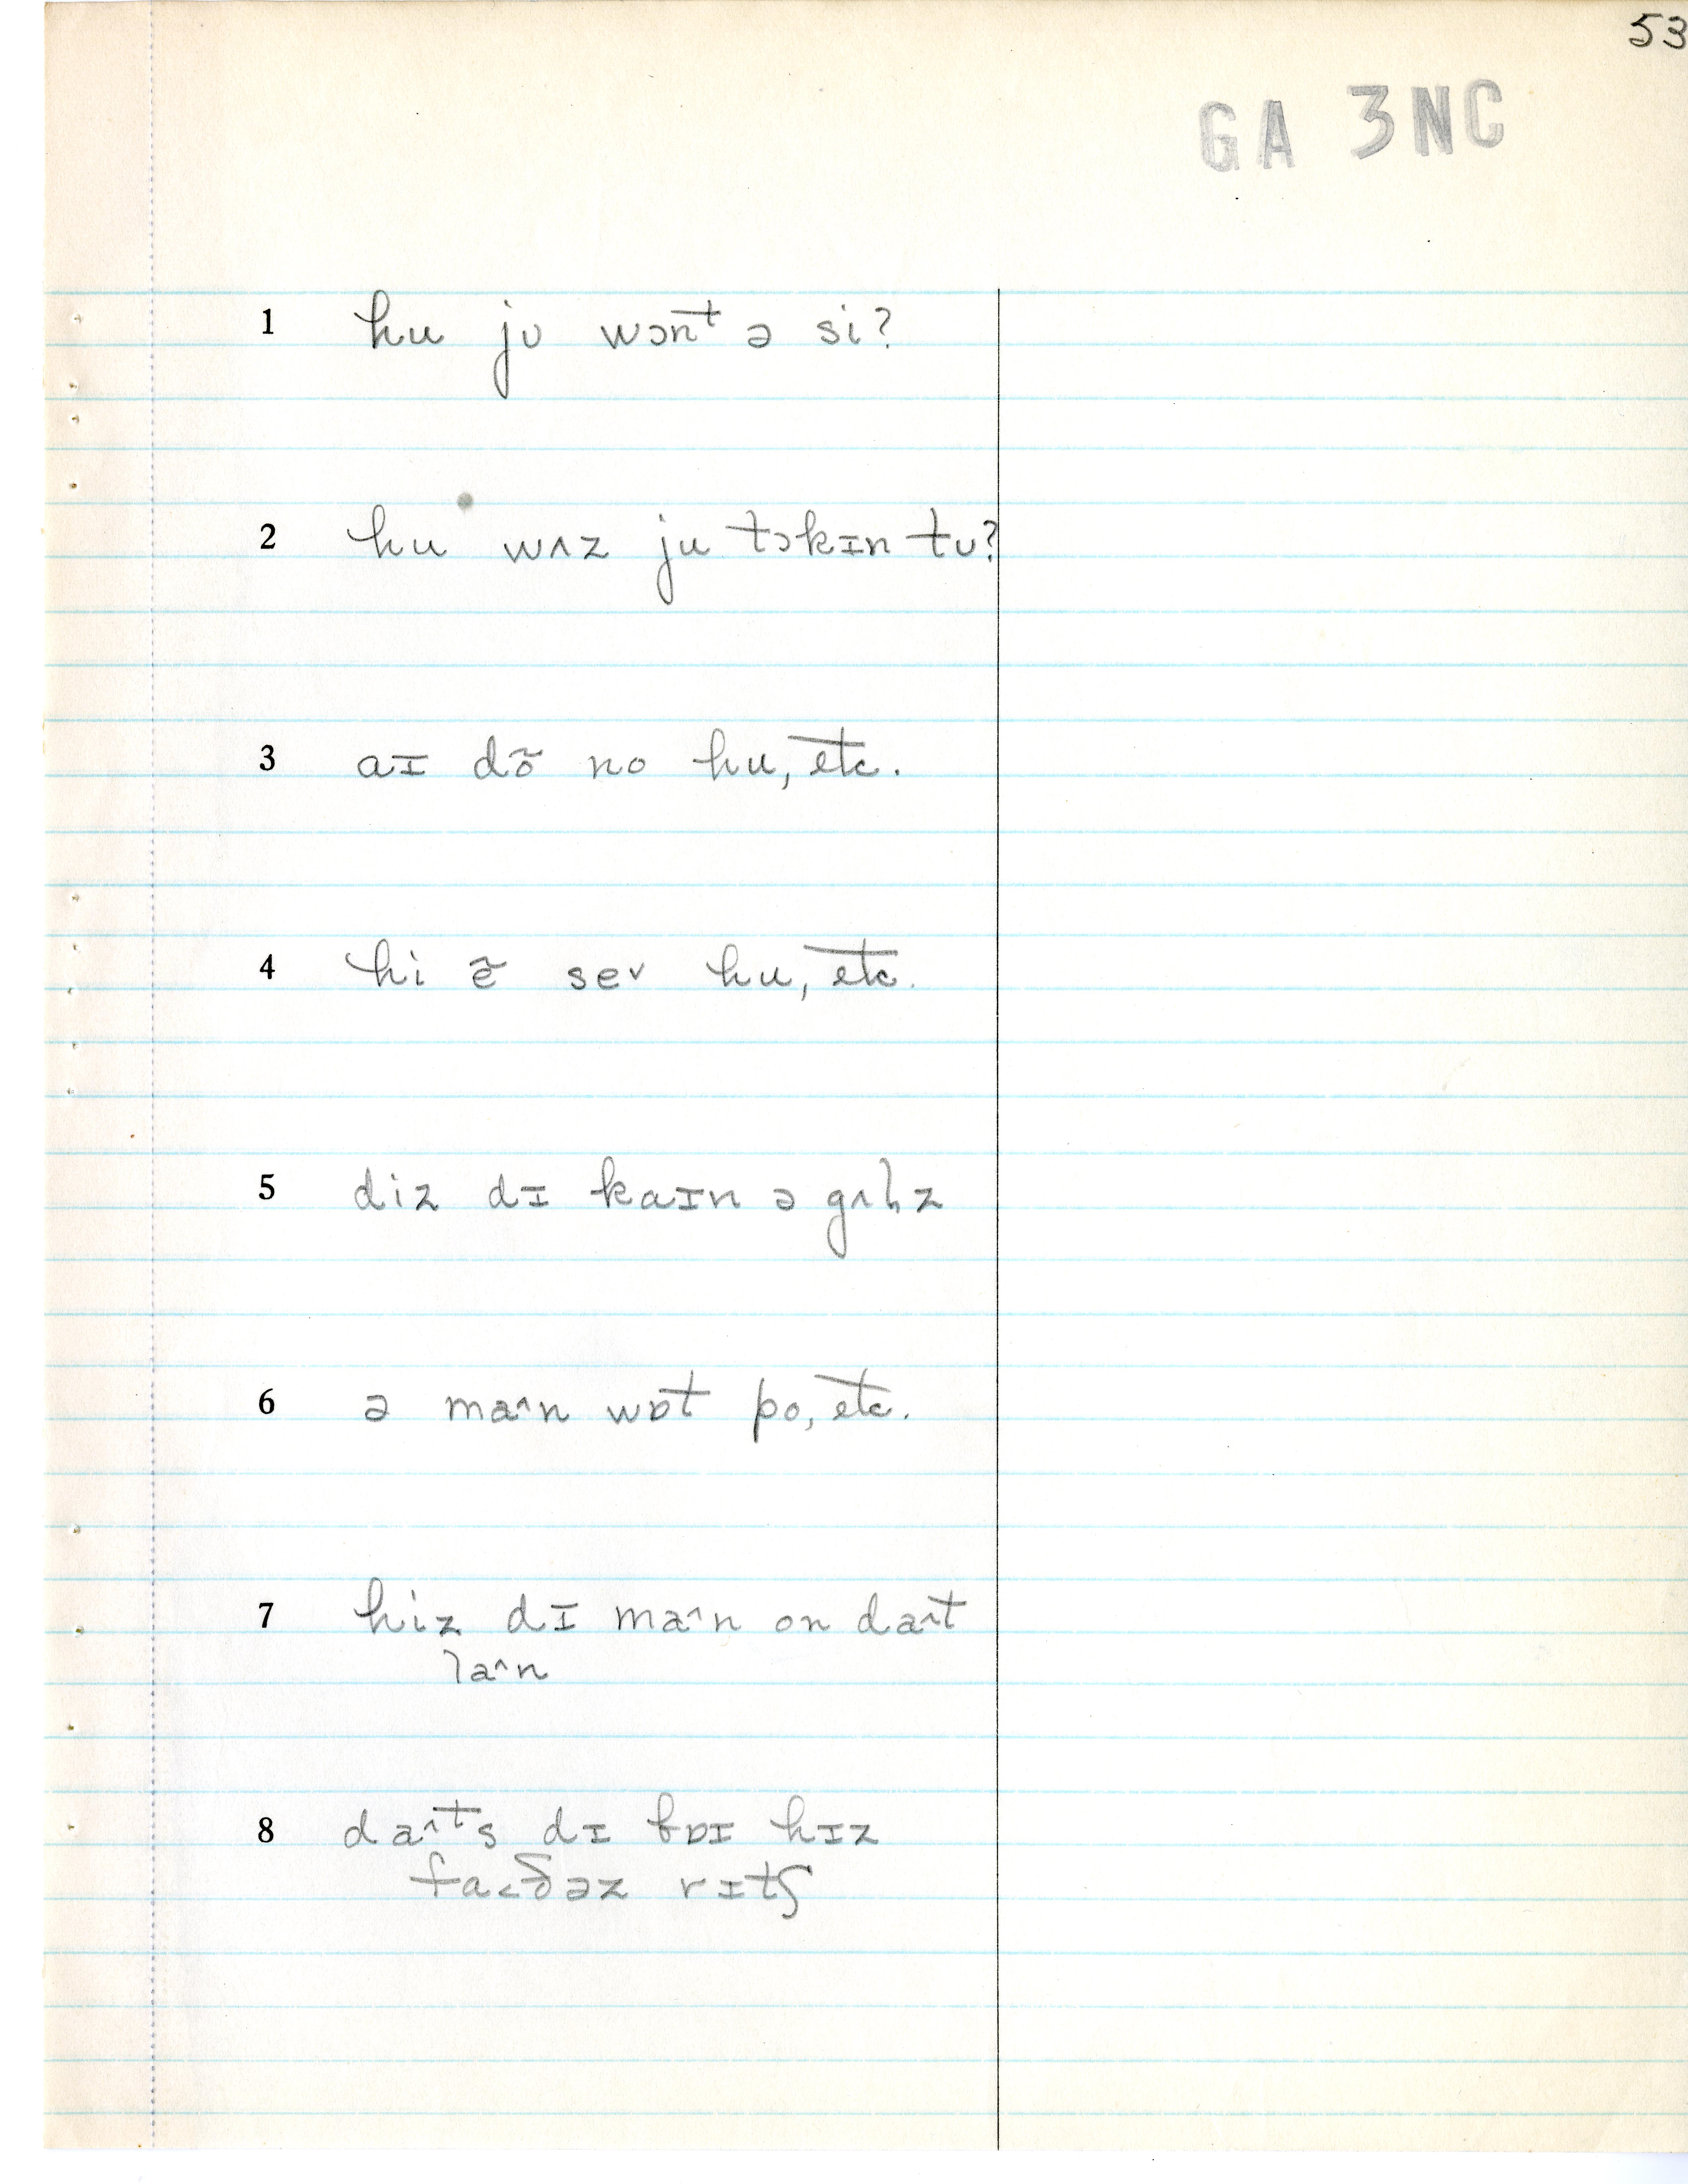 53
GA 3NC
1 hu jʊ wɔnt ə si?
2 hu wʌz ju tɔkɪn tʊ?
3 aɪ dõ no hu, etc.
4 hi ẽ sev hu, etc.
5 diz dɪ kaɪn ə gʌlz
6 ə ma^n wɒt po, etc.
7 hiz dɪ ma^n on da^t
la^n
8 da^ts dɪ bɒɪ hɪz
fa<ðəz rɪtʃ